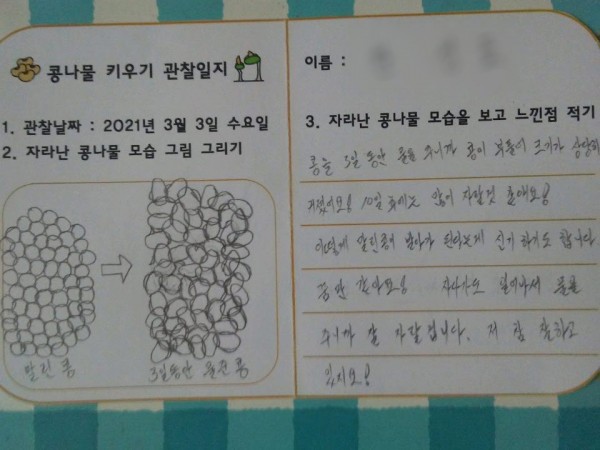 콩나물 키우기 관찰일지
1. 관찰날짜 : 2021년 3월 3일 수요일
2. 자라난 콩나물 모습 그림 그리기
말린 콩
3일동안 물준 콩
이름 :
3. 자라난 콩나물 모습을 보고 느낀점 적기
콩을 3일 동안 물을 주니까 콩이 크기가 상당히
커졌어요! 10일 후에는 많이 자랄것 같애요!
어떻게 말린콩이 된다는게 신기 하기도 합니다
동안 자다가도 일어나서 물을
주니까 잘 자랄 겁니다. 저 참 잘하고
있지요!